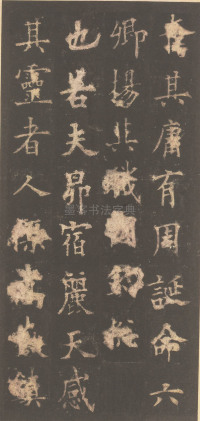 其庸有周誕命六
卿揚其職
也若夫昴宿麗天感
其靈者人鎮
书法字典